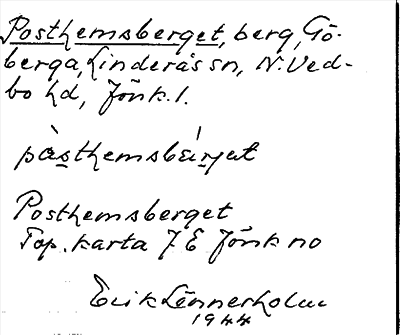 Posthemsberget, berg, Gö-
berga, Linderås sn, N. Ved-
bo hd, Jönk. l.
pàsthemsbærjet
Posthemsberget
Top. karta 7 E Jönk no
Erik Lönnerholm
1944